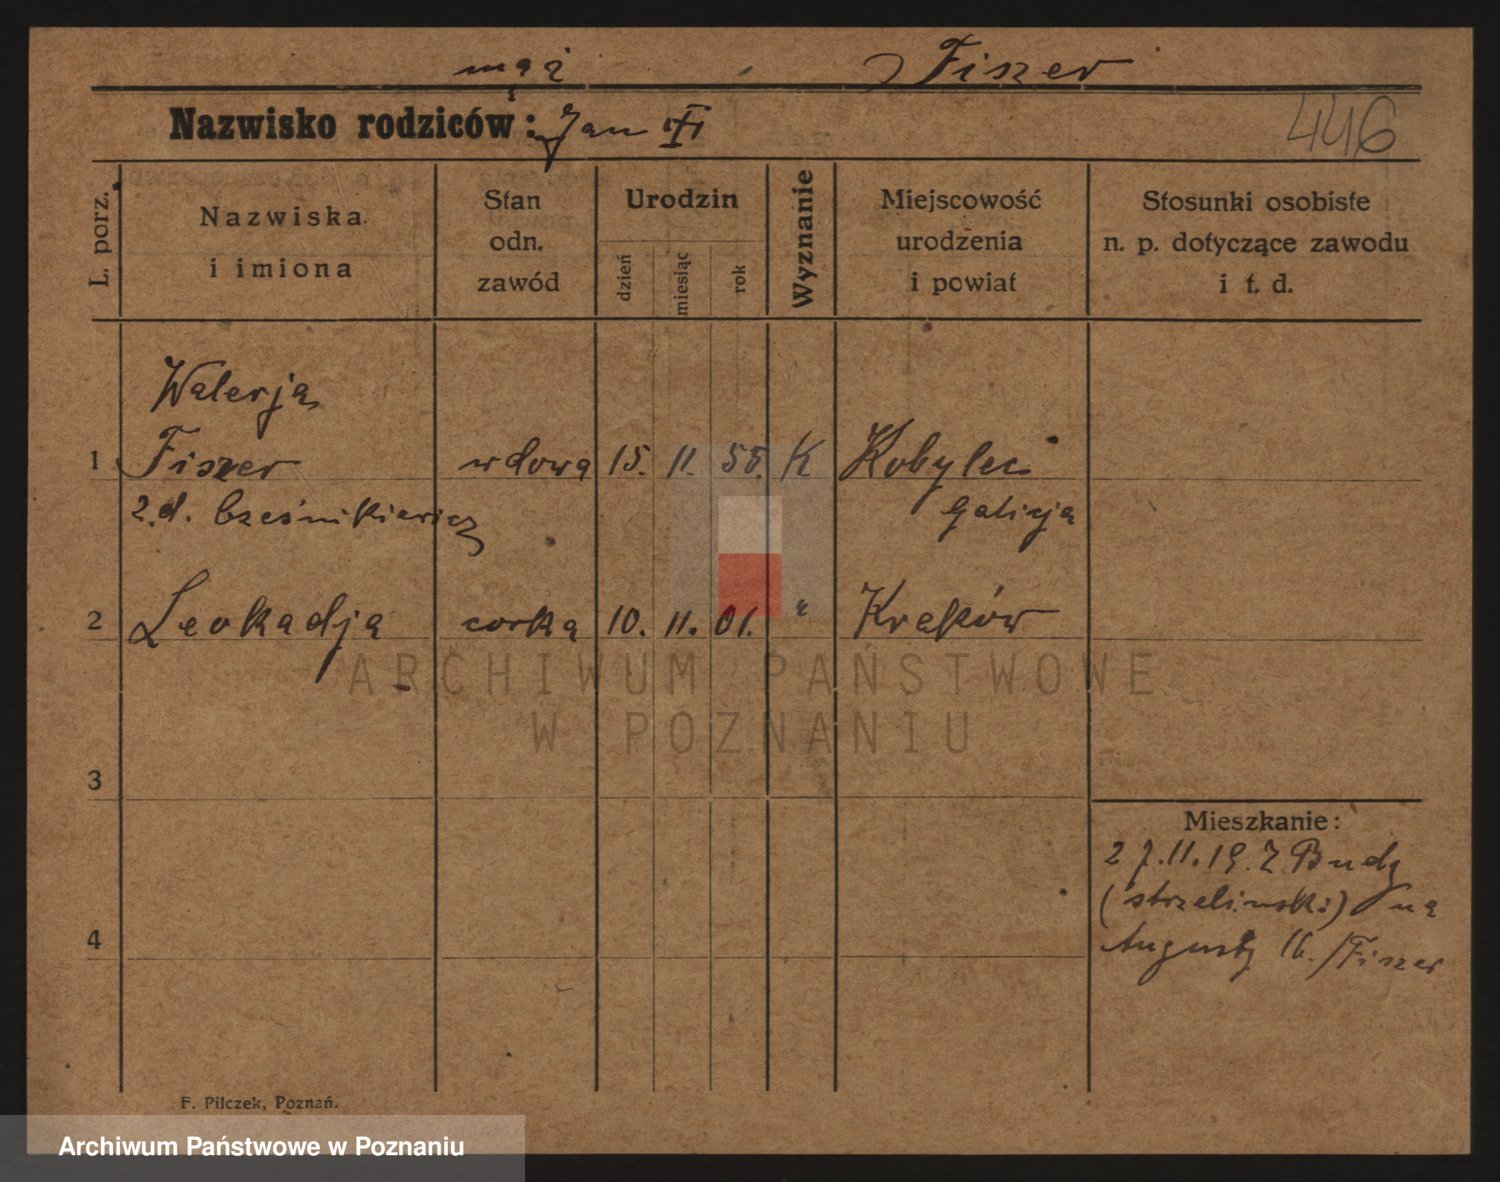 mąż Fiszer
Nazwisko rodziców: Jan
446
L. porz.
Nazwiska
i imiona
Stan
odn.
zawód
Urodzin
dzień
miesiąc
rok
Wyznanie
Miejscowość
urodzenia
i powiat
Stosunki osobiste
n. p. dotyczące zawodu
i t. d.
Walerja
1 Fiszer wdowa 15. 11. 55. K Kobylec
Galicja
2 Leokadja corka 10. 11. 01. " Kraków
ARCHIWUM PAŃSTWOWE
W POZNANIU
3
Mieszkanie:
27.11.19. Z Budz
(strzelinski) na
4
Augusty 16. / Fiszer
F. Pilczek, Poznań.
Archiwum Państwowe w Poznaniu